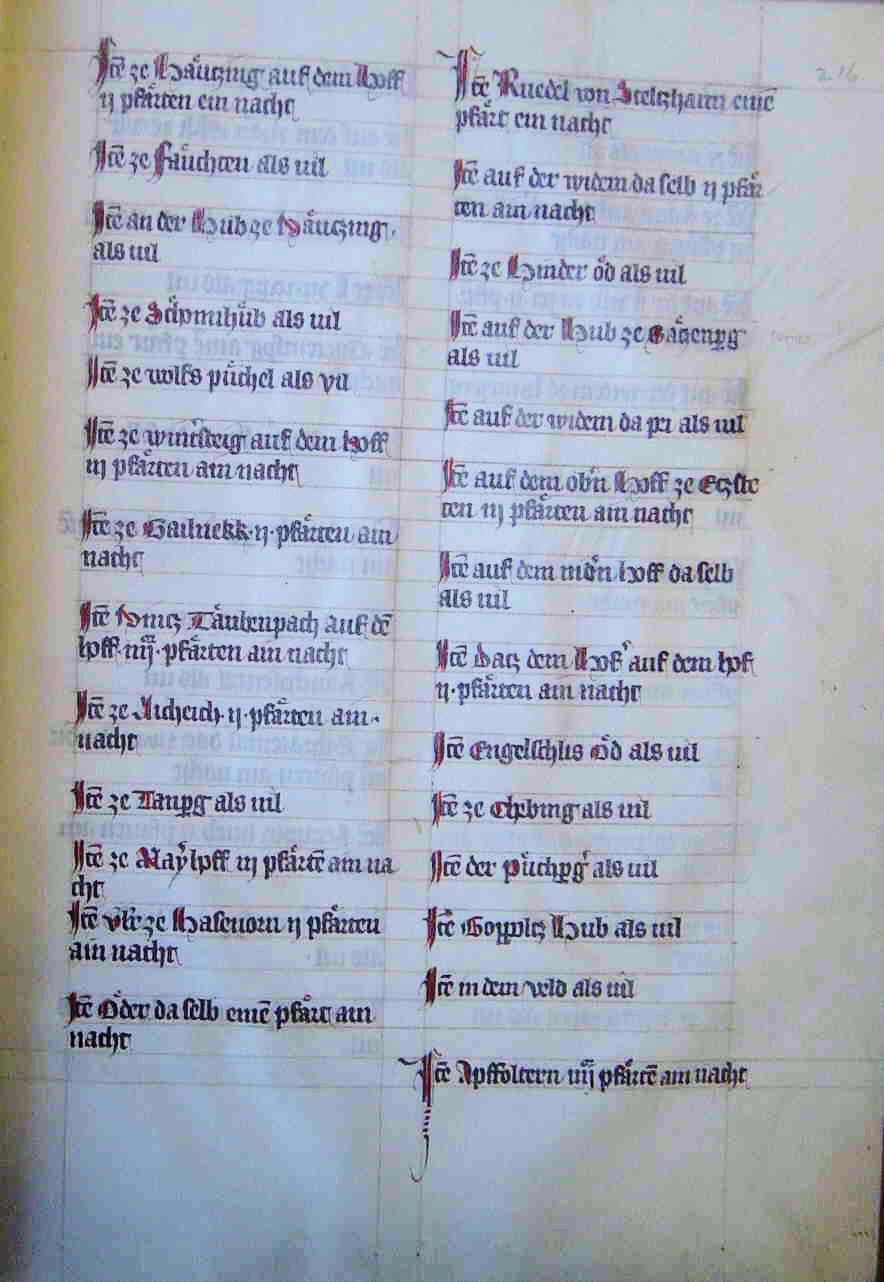 Itē ze Håutzing auf dem Hoff
ij pfårten ein nacht
Itē ze fåuchten als uil
Itē an der Hub ze Håutzing
als uil
Itē ze Schonnhůb als uil
Itē ze wolfs půchel als vil
Itē ze wintsteig auf dem hoff
iij pfårten ain nacht
Itē ze Gailnekk ij pfårten ain
nacht
Itē Håutz Tåubenpach auf dē
hoff iiij pfårten ain nacht
Itē ze Aicheich ij pfårten ain
nacht
Itē ze Tanprg als uil
Itē ze Mayrhoff iij pfårtē ain na
cht
Itē vlr ze Hasenorn ij pfårten
ain nacht
Itē Öder da selb einē pfårt ain
nacht
216
Itē Ruedel von Steltzhaim einē
pfårt ein nacht
Itē auf der widem da selb ij pfår
ten ain nacht
Itē ze Hinder öd als uil
Itē auf der Hub ze
als uil
Itē auf der widem da pei als uil
Itē auf dem obrn Hoff ze Etzste
ten iij pfårten ain nacht
Itē auf dem nidrn hoff da selb
als uil
Itē Datz dem Hof auf dem hof
ij pfårten ain nacht
Itē Engelschlis Öd als uil
Itē ze als uil
Itē der Půchprgr als uil
Itē Goppoltz Hub als uil
Itē in dem veld als uil
Itē Apffoltern iiij pfårtē ain nacht